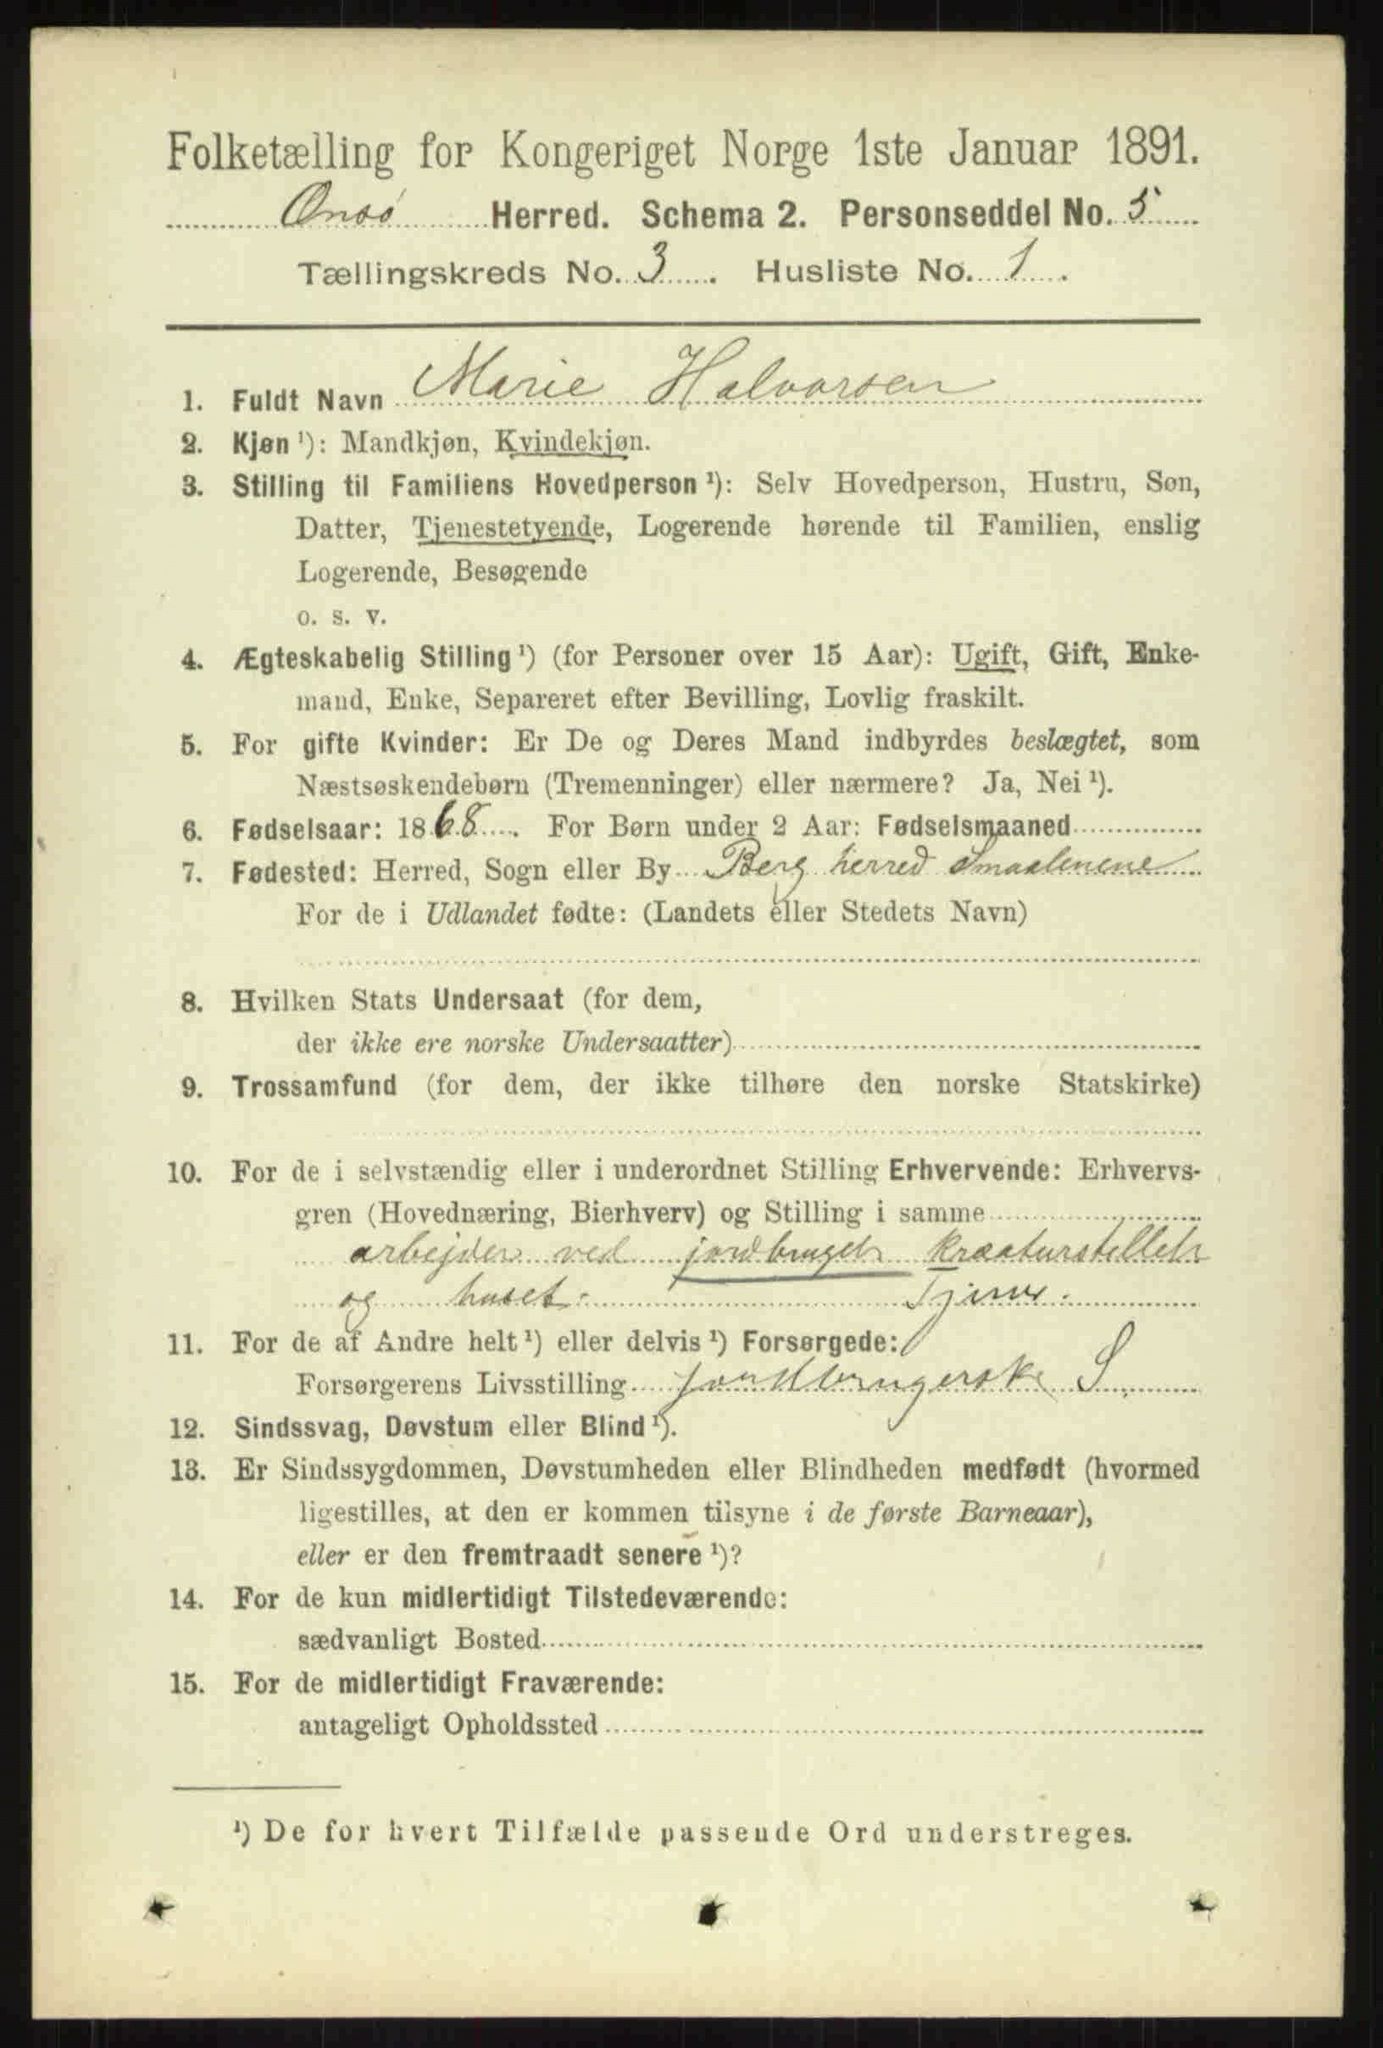 Folketælling for Kongeriget Norge 1ste Januar 1891.
Onsø Herred. Schema 2. Personseddel No. 5
Tællingskreds No. 3. Husliste No. 1.
1. Fuldt Navn Marie Halvorsen
2. Kjøn ¹): Mandkjøn, Kvindekjøn.
3. Stilling til Familiens Hovedperson ¹): Selv Hovedperson, Hustru, Søn,
Datter, Tjenestetyende, Logerende hørende til Familien, enslig
Logerende, Besøgende
o. s. v.
4. Ægteskabelig Stilling ¹) (for Personer over 15 Aar): Ugift, Gift, Enke-
mand, Enke, Separeret efter Bevilling, Lovlig fraskilt.
5. For gifte Kvinder: Er De og Deres Mand indbyrdes beslægtet, som
Næstsøskendebørn (Tremenninger) eller nærmere? Ja, Nei ¹).
6. Fødselsaar: 1868. For Børn under 2 Aar: Fødselsmaaned
7. Fødested: Herred, Sogn eller By Berg herred Smaalenene
For de i Udlandet fødte: (Landets eller Stedets Navn)
8. Hvilken Stats Undersaat (for dem,
der ikke ere norske Undersaatter)
9. Trossamfund (for dem, der ikke tilhøre den norske Statskirke)
10. For de i selvstændig eller i underordnet Stilling Erhvervende: Erhvervs-
gren (Hovednæring, Bierhverv) og Stilling i samme
arbejder ved jordbruget kreaturstellet
og huset. Tjener.
11. For de af Andre helt ¹) eller delvis ¹) Forsørgede:
Forsørgerens Livsstilling S.
12. Sindssvag, Døvstum eller Blind ¹).
13. Er Sindssygdommen, Døvstumheden eller Blindheden medfødt (hvormed
ligestilles, at den er kommen tilsyne i de første Barneaar),
eller er den fremtraadt senere ¹)?
14. For de kun midlertidigt Tilstedeværende:
sædvanligt Bosted
15. For de midlertidigt Fraværende:
antageligt Opholdssted
¹) De for hvert Tilfælde passende Ord understreges.